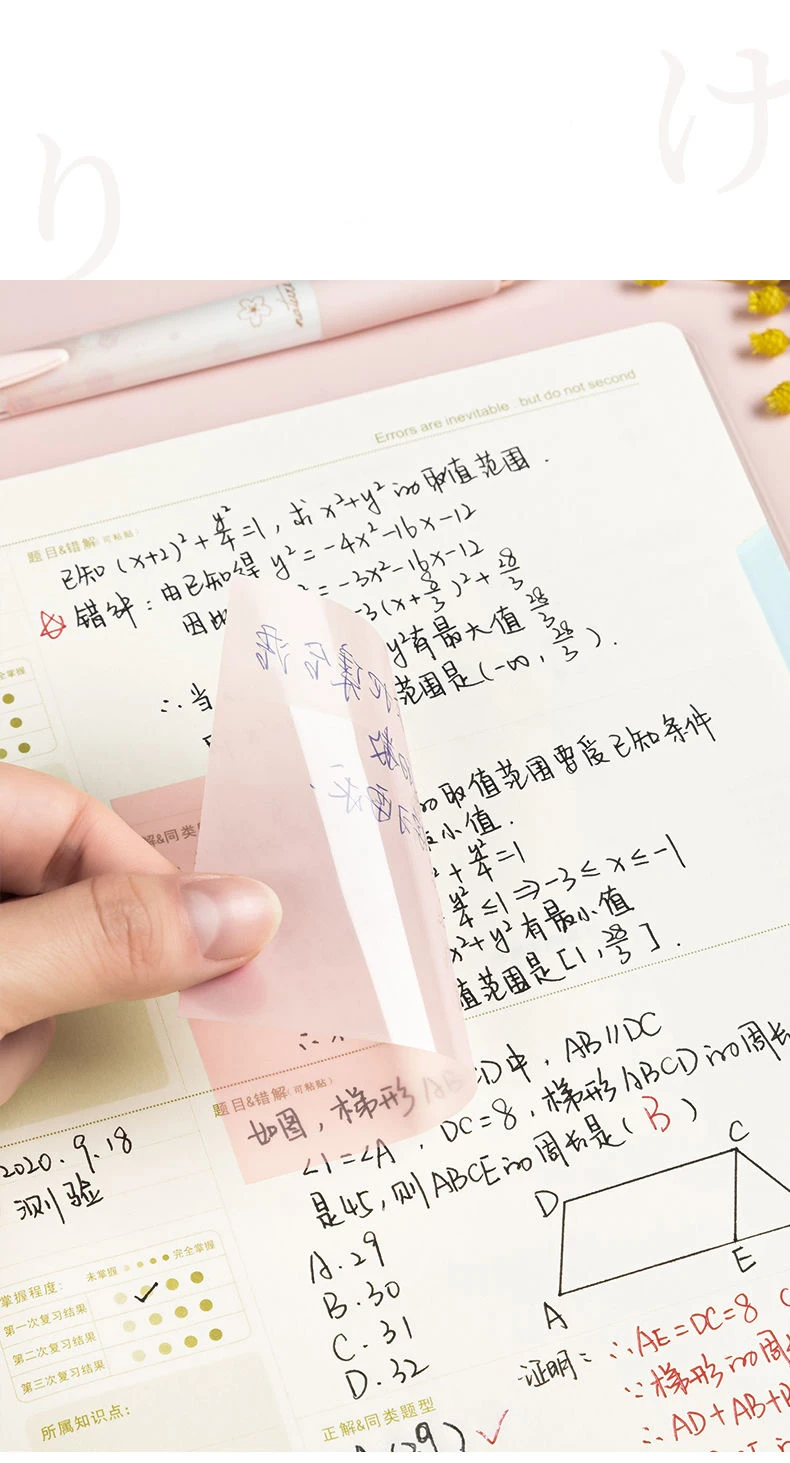 り
け
Errors are inevitable . but do not second
题目&错解(可粘贴)
已知 (x+2)²+y²/4=1, 求 x²+y² 的取值范围.
错解: 由已知得 y²=-4x²-16x-12
因此 ²=-3x²-16x-12
-3(x+8/3)²+28/3
∴当 y²有最大值 28/3
范围是(-∞, 28/3).
的取值范围要受已知条件
小值.
²+y²/4=1
y²/4≤1⇒-3≤x≤-1
x²+y²有最小值
值范围是[1, 28/3].
解&同类
全掌握
题目&错解(可粘贴)
如图, 梯形AB CD中, AB∥DC
∠1=∠A, DC=8, 梯形ABCD的周长
是45, 则ABCE的周长是( B )
A. 29
B. 30
C. 31
D. 32
D
C
A
E
证明:
∴AE=DC=8
∵梯形的周
∴AD+AB+
2020.9.18
测验
掌握程度:
未掌握 完全掌握
第一次复习结果
第二次复习结果
第三次复习结果
所属知识点:
正解&同类题型